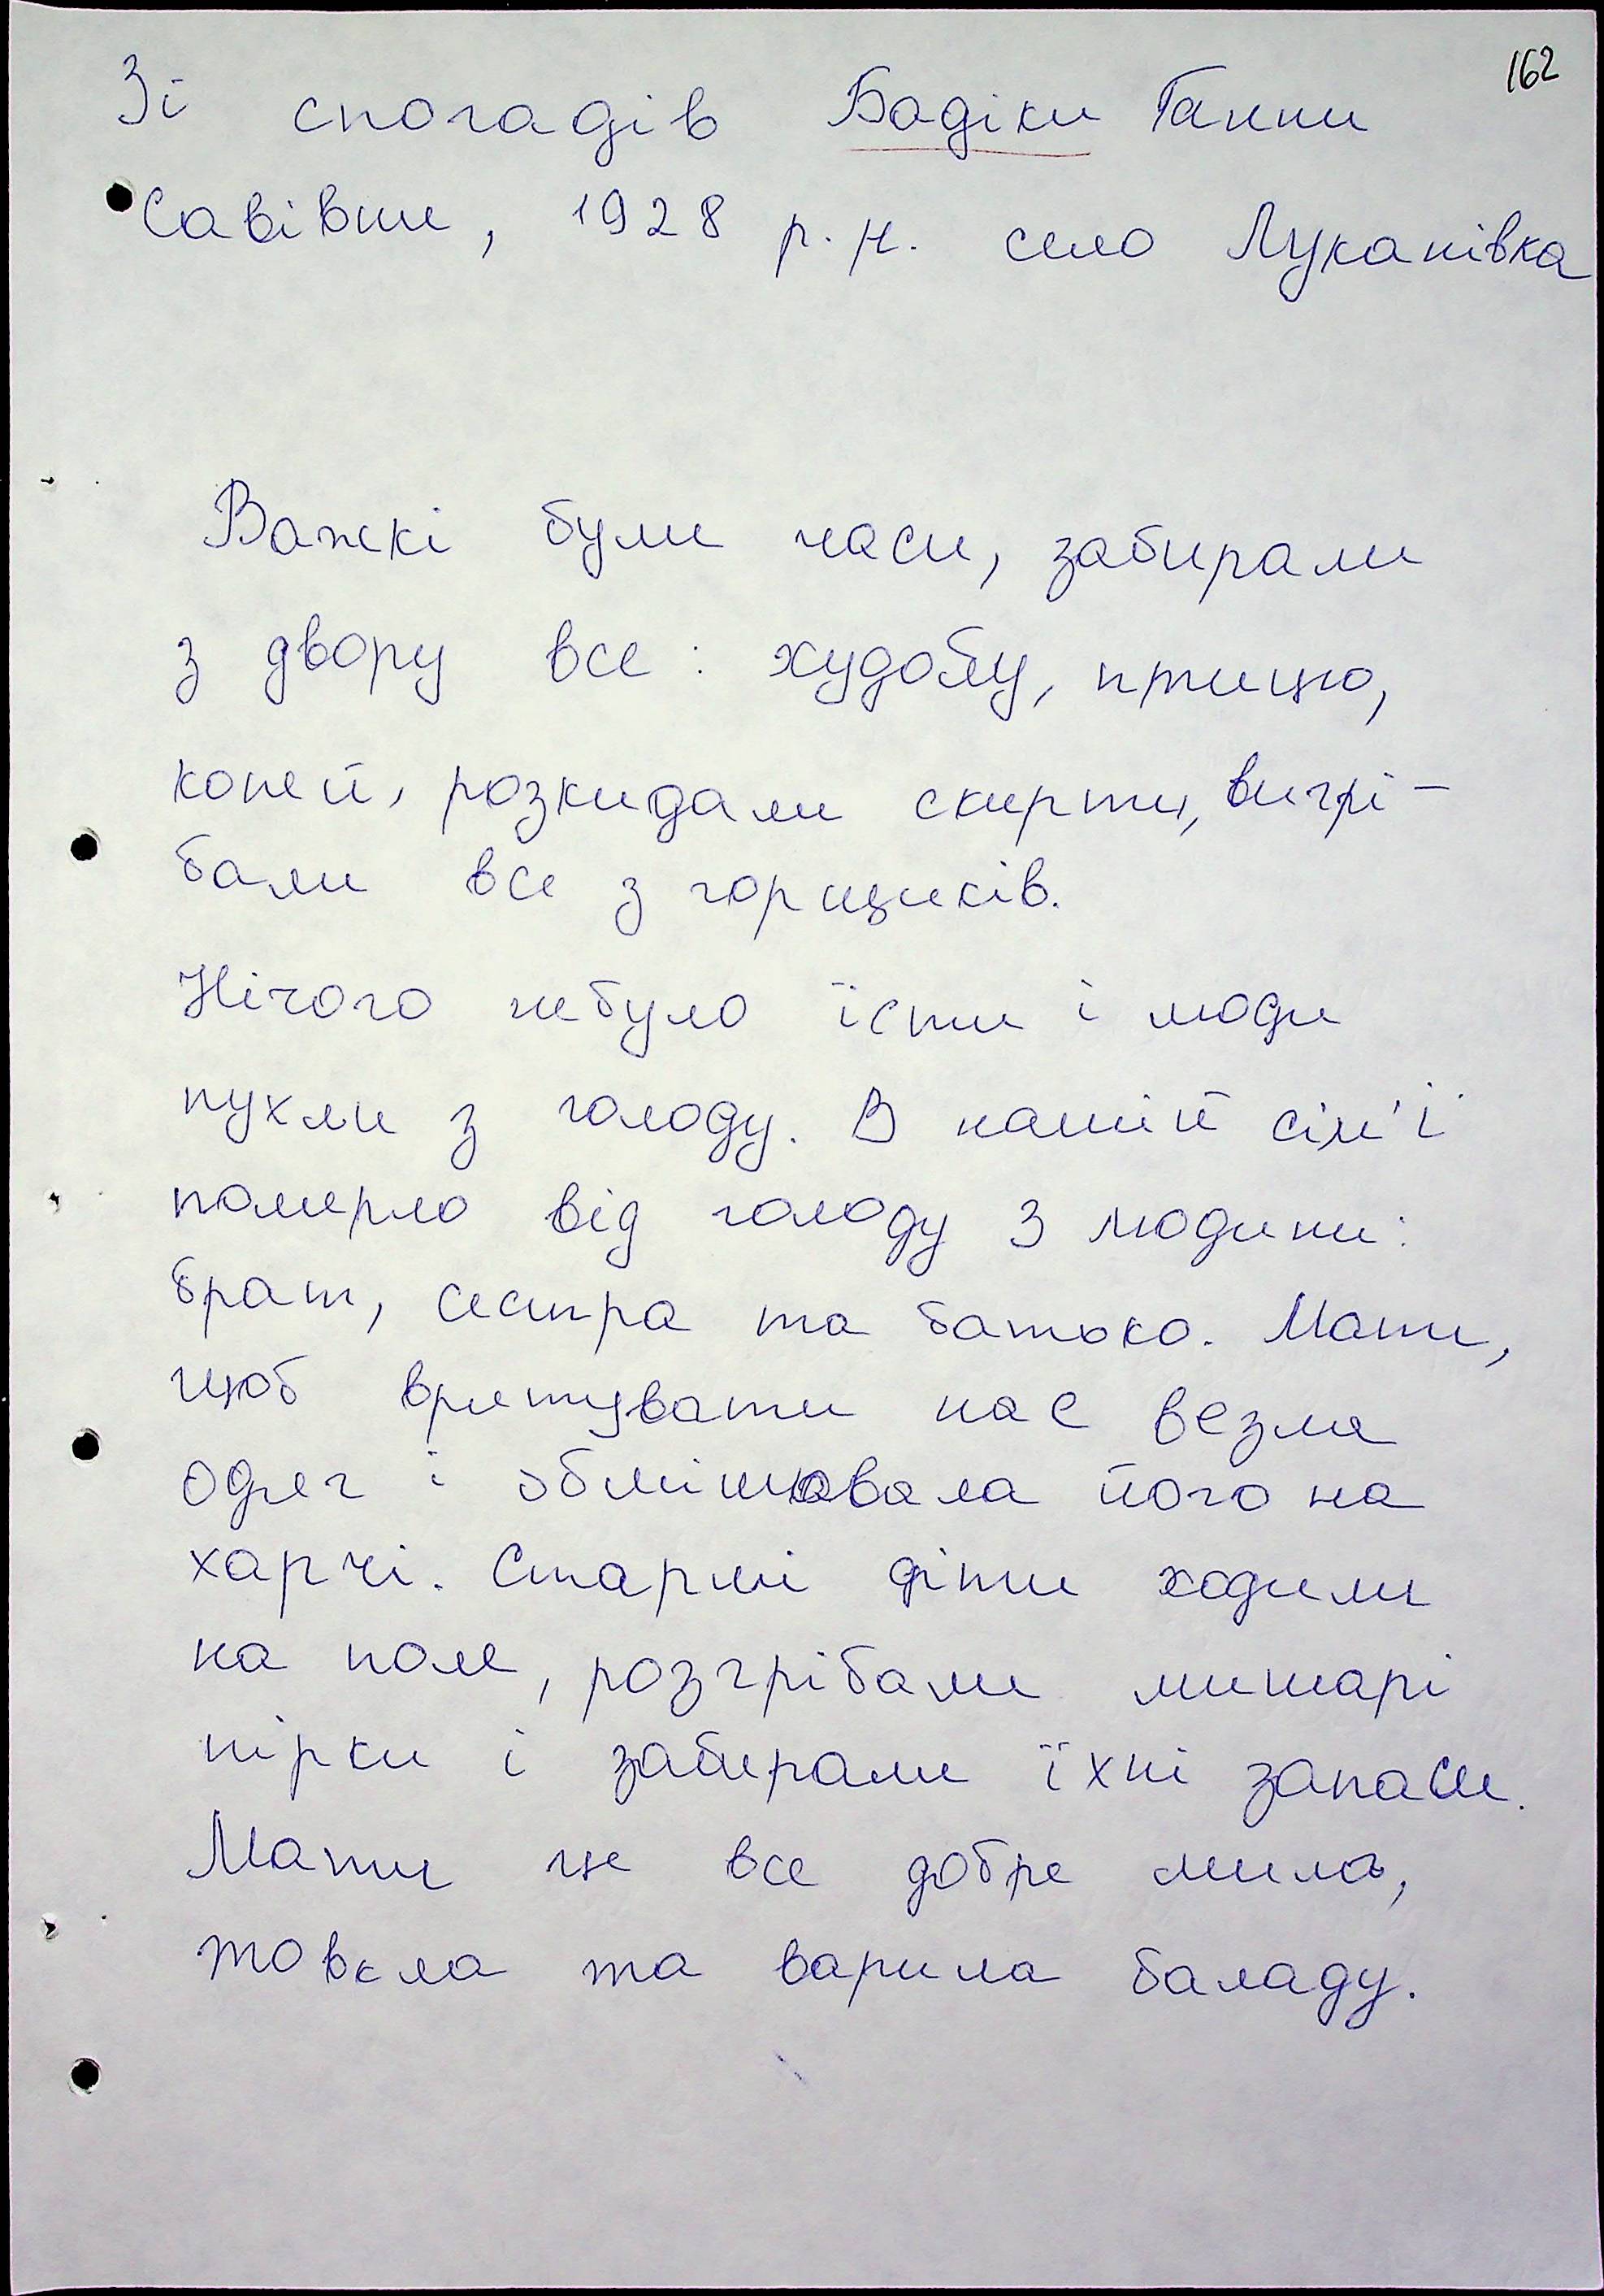 162
Зі спогадів Бадіки Ганни
Савівни, 1928 р.н. село Луканівка
Важкі були часи, забирали
з двору все: худобу, птицю,
коней, розкидали скирти, вигрі-
бали все з горщиків.
Нічого небуло їсти і люди
пухли з голоду. В нашій сім'ї
померло від голоду 3 людини:
брат, сестра та батько. Мати,
щоб врятувати нас везла
одяг і обмінювала його на
харчі. Старші діти ходили
на поле, розгрібали мишарі
нірки і забирали їхні запаси.
Мати це все добре мила,
товкла та варила баладу.